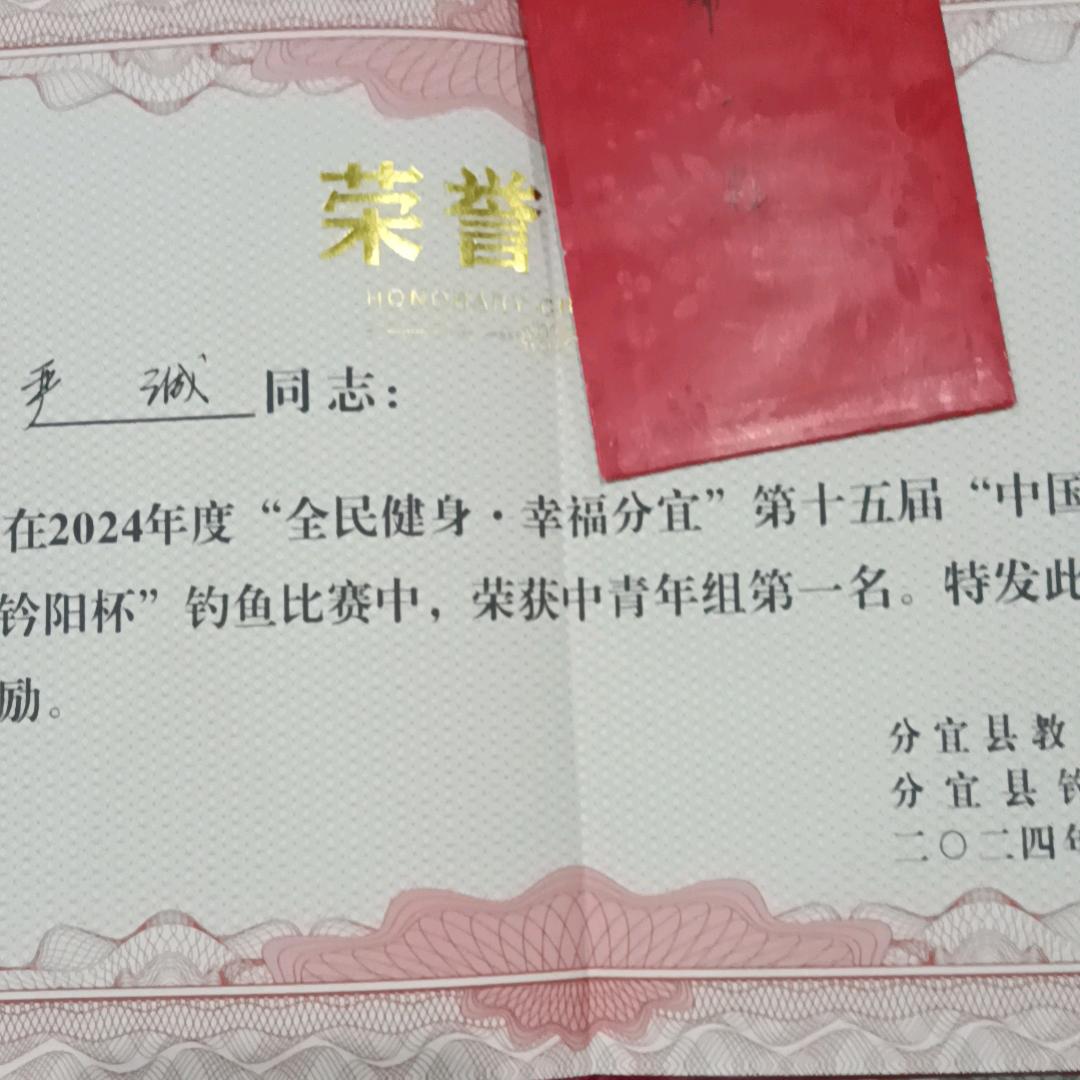 荣誉
HONORARY CR
严 诚 同志：
在2024年度“全民健身·幸福分宜”第十五届“中国
钤阳杯”钓鱼比赛中，荣获中青年组第一名。特发此
励。
分宜县教
分宜县钓
二〇二四年